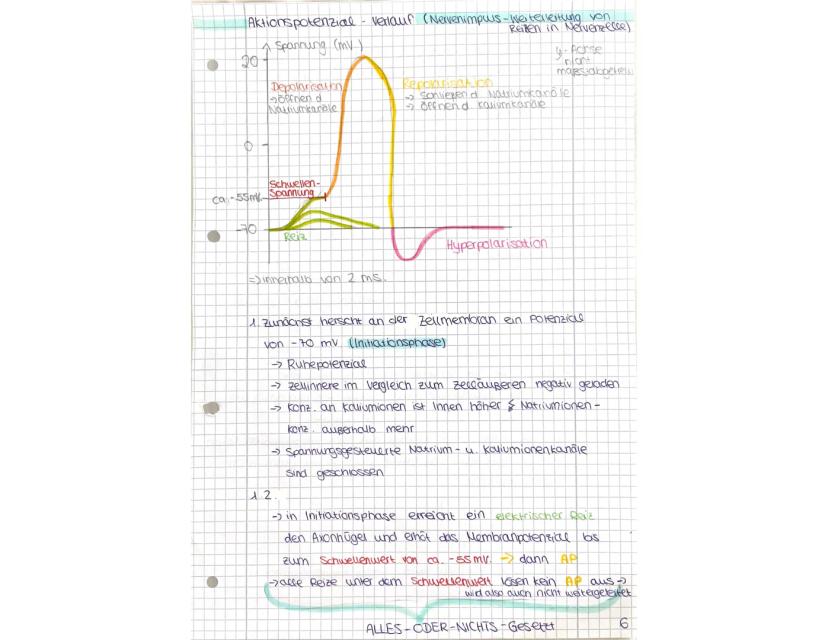 Aktionspotenzial - Verlauf (Nervenimpuls-Weiterleitung von
Reizen in Nervenzelle)
Spannung (mV)
y-Achse
nicht
20
Depolarisation
→ öffnend
Natriumkanäle
Repolarisation
→ schließend Natriumkanäle
→ öffnend Kaliumkanäle
0
Schwellen-
spannung
ca. -55mV
-70
Reiz
Hyperpolarisation
=> innerhalb von 2 ms.
1. Zunächst herscht an der Zellmembran ein Potenzial
von -70 mV. (Initiationsphase)
→ Ruhepotenzial
→ Zellinnere im Vergleich zum Zelläußeren negativ geladen
→ Konz. an Kaliumionen ist Innen höher & Natriumionen-
konz. außerhalb mehr
→ Spannungsgesteuerte Natrium- u. Kaliumionenkanäle
sind geschlossen
1.2.
→ in Initiationsphase erreicht ein elektrischer Reiz
den Axonhügel und erhöt das Membranpotenzial bis
zum Schwellenwert von ca. -55mV. → dann AP
→ alle Reize unter dem Schwellenwert lösen kein AP aus →
wird also auch nicht weitergeleitet
ALLES-ODER-NICHTS-Gesetzt
6